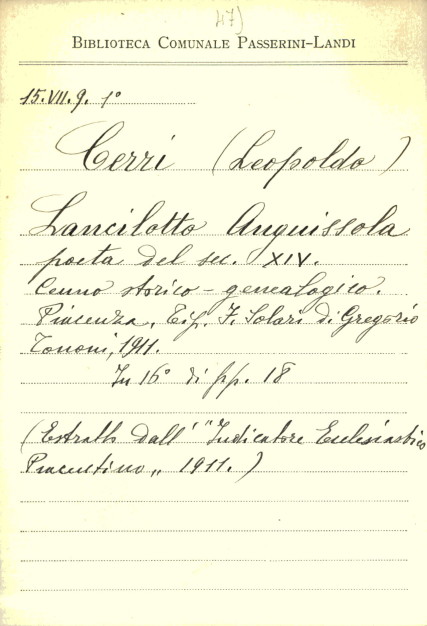 47)
BIBLIOTECA COMUNALE PASSERINI-LANDI
15.VII.9. 1º
Cerri (Leopoldo)
Lancilotto Anguissola
poeta del sec. XIV.
Cenno storico-genealogico.
Piacenza, Tip. F. Solari di Gregorio
Tononi, 1911.
In 16º di pp. 18
(Estratto dall' "Indicatore Ecclesiastico
Piacentino„ 1911.)